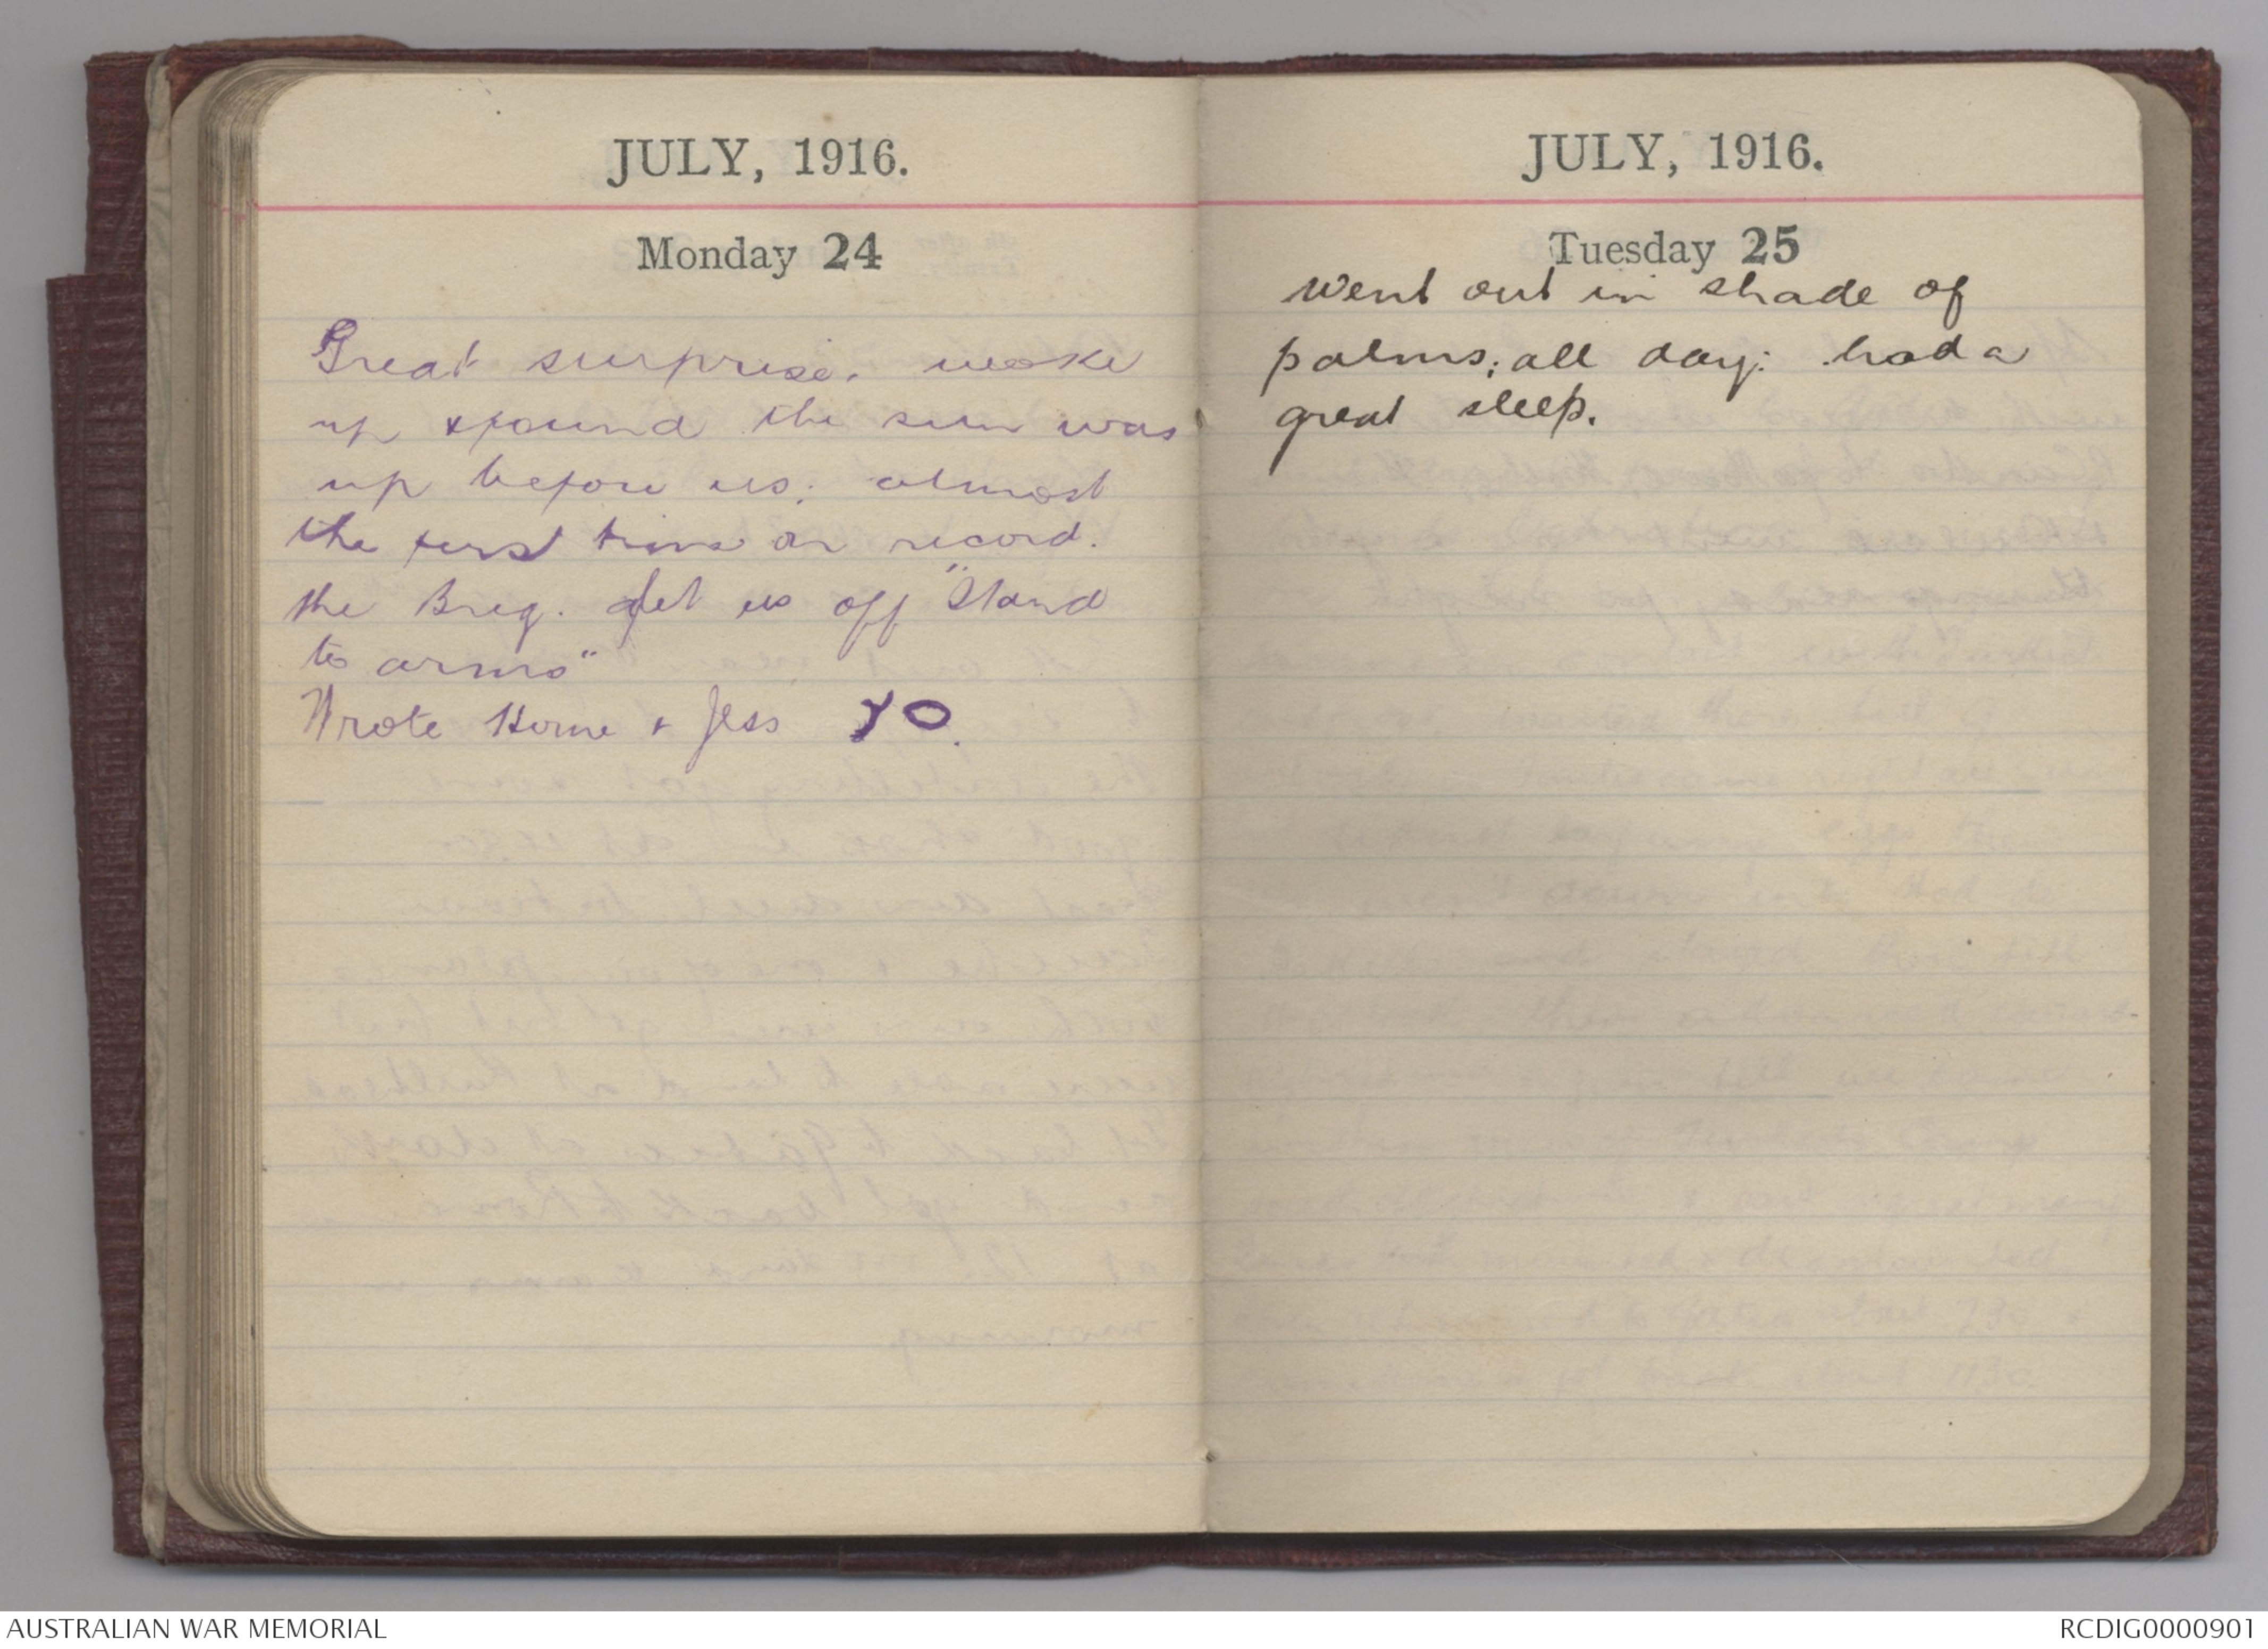 JULY, 1916.
Monday 24
Great surprise. woke
up & found the sun was
up before us; almost
the first time on record.
the Brig. let us off "Stand
to arms"
Wrote Home & Jess YO.
JULY, 1916.
Tuesday 25
Went out in shade of
palms; all day: had a
great sleep.
AUSTRALIAN WAR MEMORIAL
RCDIG0000901